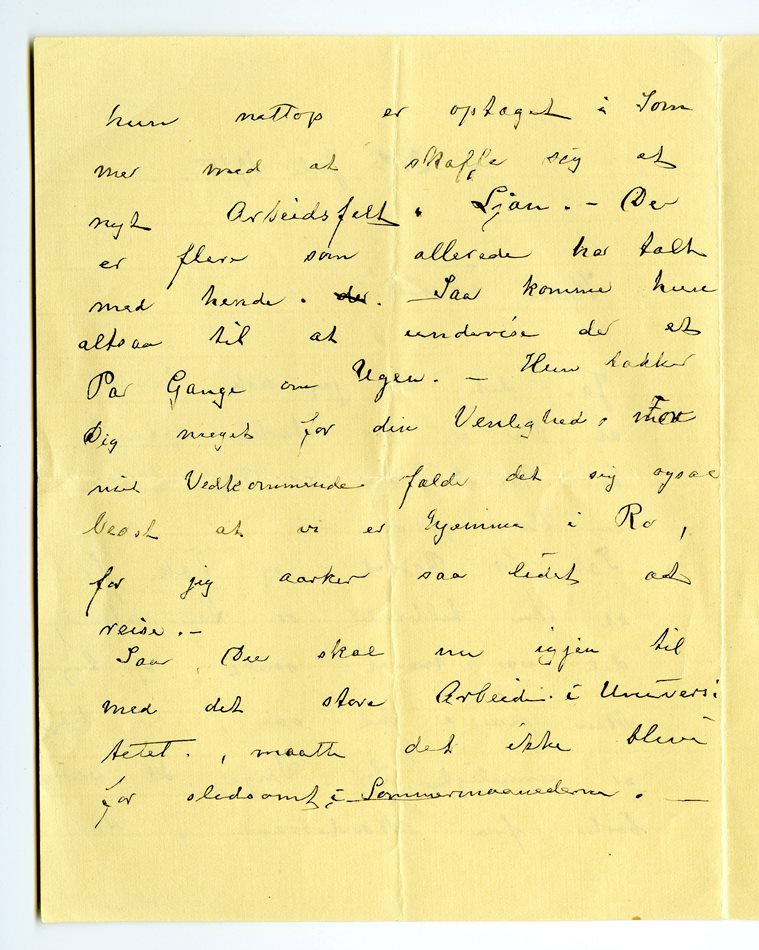 hun nettop er optaget i Som
mer med at skaffe sig et
nyt Arbeidsfelt. Ljan. – Der
er flere som allerede har talt
med hende. der. – Saa kommer hun
altsaa til at undervise der et
Par Gange om Ugen. – Hun takker
Dig meget for din Venlighed. For
mit Vedkommende falde det sig ogsaa
beost at vi er hjemme i Ro,
for jeg aarker saa lidet at
reise. –
Saa, Du skal nu igjen til
med det store Arbeide i Universi
tetet., maatte det ikke blive
for slidsomt i Sommermaanederne. –